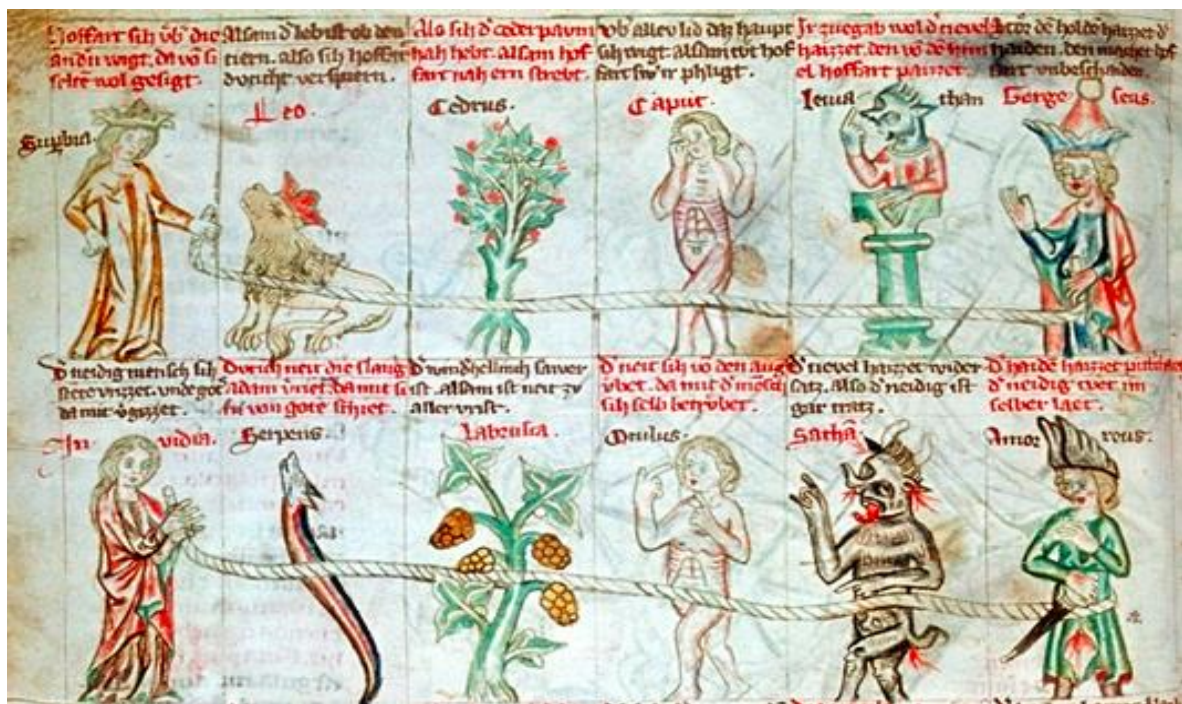 Hoffart sih vb' die
andn wigt. da vo si
selten wol gesigt.
Alsam d' leb ist ob den
tiern. also sih hoffart
duricht versmern.
Also sih d' ceder paum
hah hebt. alsam hof
fart nah ern strebt.
ob aller lid daz haupt
sih wigt. alsam tvt hof
fart
phligt.
wol d' tievel
haizzet. den vo de him
el hoffart
haizzet d'
haiden. den machet hof
fart vnbeschaiden.
Supbia.
Leo.
Cedrus.
Caput.
Leuia than
Gorge seus.
D' neidig mensch sih
stete vrizzet. vnde got
da mit v'gizzet.
Durich neit die slang
adam v'riet. da mit si
in von gote schiet.
D' wind hellinch sawer
ist. alsam ist neit zv
aller vrist.
D' neit sih vo den aug
vbet. da mit d' mesch
sih selb betrvbet.
D' tievel haizzet wider
satz. also d' neidig ist
gar tratz.
D' haide haizzet
d' neidig tvet im
selber laet.
In vidia.
Serpens.
Labrusca.
Oculus.
Satha
Amor reus.